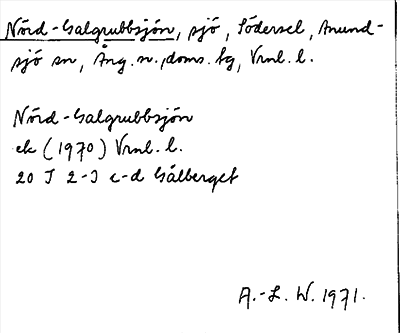 Nörd-Galgrubbsjön, sjö, Södersel, Anund-
sjö sn, Ång. n. doms. tg, Vrnl. l.
Nörd-Galgrubbsjön
ek (1970) Vrnl. l.
20 J 2-3 c-d Gålberget
A.-L. W. 1971.